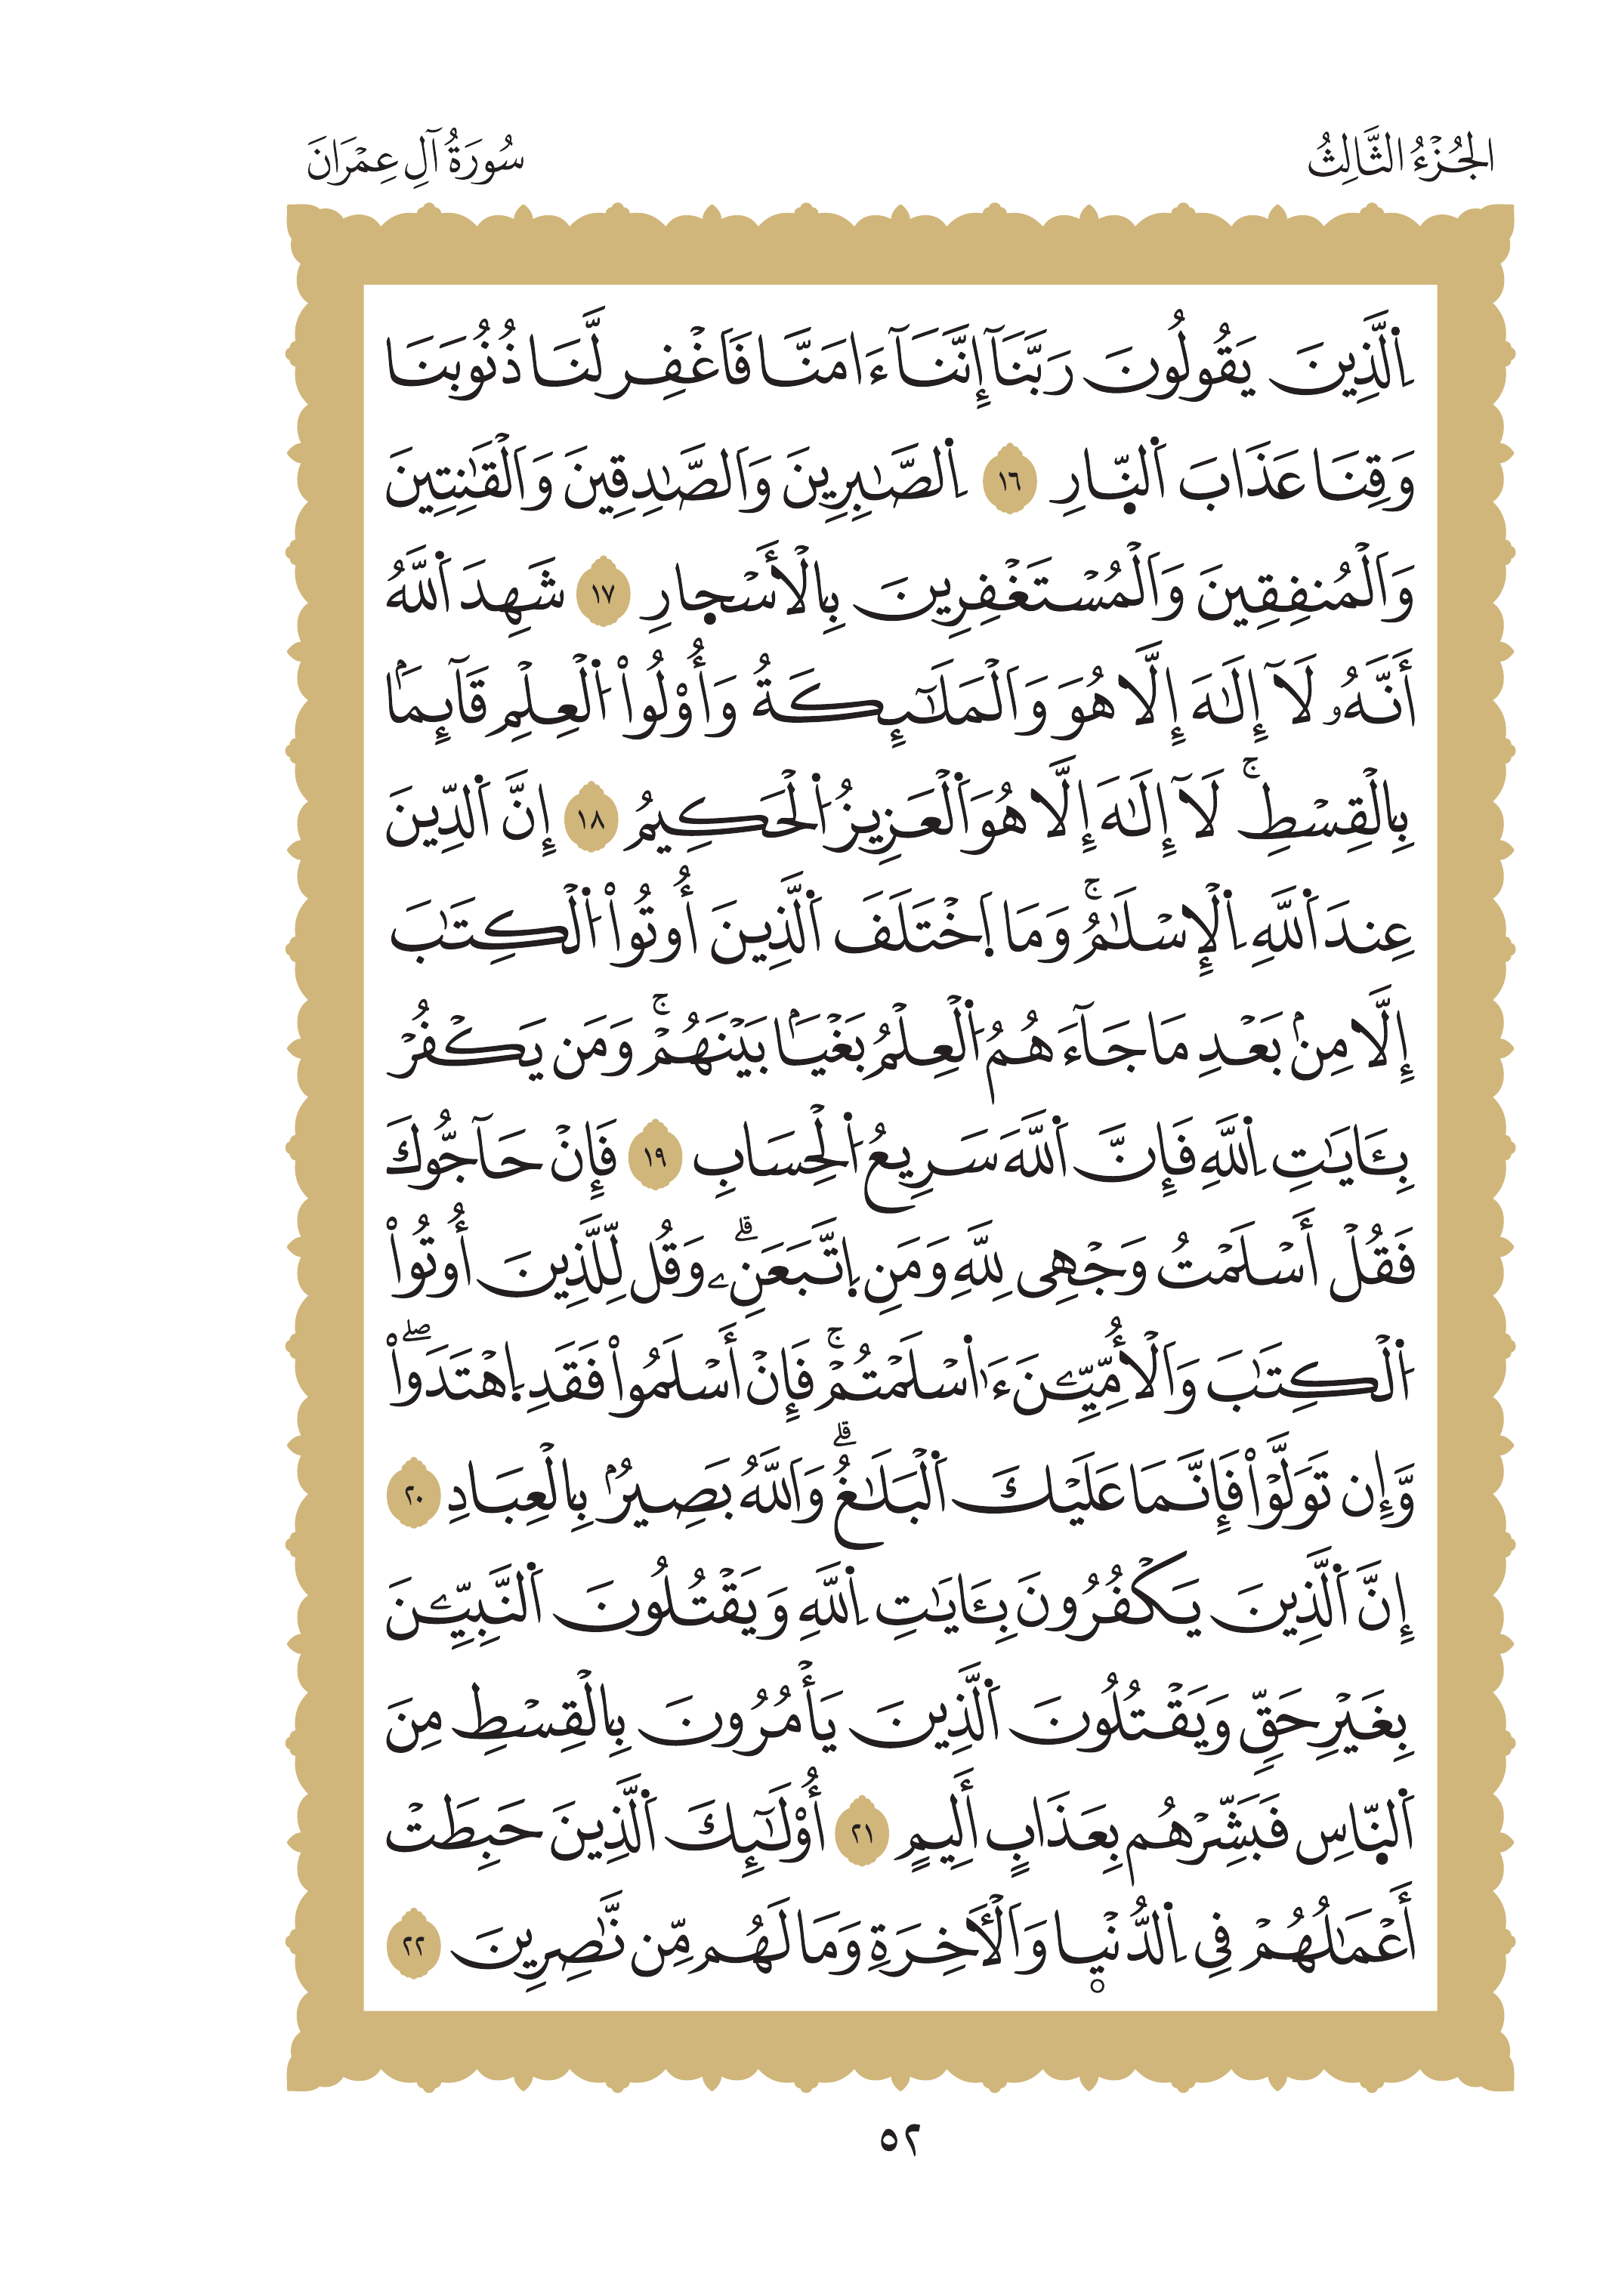 الجُزْءُ الثَّالِثُ
سُورَةُ آلِ عِمْرَانَ
اِ۬لَّذِينَ يَقُولُونَ رَبَّنَآ إِنَّنَآ ءَامَنَّا فَاَغْفِر لَّنَا ذُنُوبَنَا
وَقِنَا عَذَابَ اَ۬لنّ۪ارِ ١٦ اِ۬لصَّٰبِرِينَ وَاَلصَّٰدِقِينَ وَاَلْقَٰنِتِينَ
وَاَلْمُنفِقِينَ وَاَلْمُسْتَغْفِرِينَ بِالْأَسْح۪ارِ ١٧ شَهِدَ اَ۬للَّهُ
أَنَّهُۥ لَآ إِلَٰهَ إِلَّا هُوَ وَاَلْمَلَٰٓئِكَةُ وَأُوْلُواْ اُ۬لْعِلْمِ قَآئِمَۢا
بِالْقِسْطِۚ لَآ إِلَٰهَ إِلَّا هُوَ اَ۬لْعَزِيزُ اُ۬لْحَكِيمُ ١٨ إِنَّ اَ۬لدِّينَ
عِندَ اَ۬للَّهِ اِ۬لْإِسْلَٰمُۚ وَمَا اَ۪خْتَلَفَ اَ۬لَّذِينَ أُوتُواْ اُ۬لْكِتَٰبَ
إِلَّا مِنۢ بَعْدِ مَا جَآءَهُمُ اُ۬لْعِلْمُ بَغْيَۢا بَيْنَهُمْۚ وَمَن يَكْفُرْ
بِـَٔايَٰتِ اِ۬للَّهِ فَإِنَّ اَ۬للَّهَ سَرِيعُ اُ۬لْحِسَابِ ١٩ فَإِنْ حَآجُّوكَ
فَقُلْ أَسْلَمْتُ وَجْهِى لِلَّهِ وَمَنِ اِ۪تَّبَعَنِۦۗ وَقُل لِّلَّذِينَ أُوتُواْ
اُ۬لْكِتَٰبَ وَاَلْأُمِّيِّـۧنَ ءَاَ۬سْلَمْتُمْۚ فَإِنْ أَسْلَمُواْ فَقَدِ اِ۪هْتَدَواْۖ
وَّإِن تَوَلَّوْاْ فَإِنَّمَا عَلَيْكَ اَ۬لْبَلَٰغُۗ وَاَللَّهُ بَصِيرُۢ بِالْعِبَادِ ٢٠
إِنَّ اَ۬لَّذِينَ يَكْفُرُونَ بِـَٔايَٰتِ اِ۬للَّهِ وَيَقْتُلُونَ اَ۬لنَّبِيِّـۧنَ
بِغَيْرِ حَقٍّ وَيَقْتُلُونَ اَ۬لَّذِينَ يَأْمُرُونَ بِالْقِسْطِ مِنَ
اَ۬لنّ۪اسِ فَبَشِّرْهُم بِعَذَابٍ أَلِيمٍ ٢١ أُوْلَٰٓئِكَ اَ۬لَّذِينَ حَبِطَتْ
أَعْمَٰلُهُمْ فِى اِ۬لدُّنْي۪ا وَاَلْأَخِرَةِ وَمَا لَهُم مِّن نَّٰصِرِينَ ٢٢
٥٢